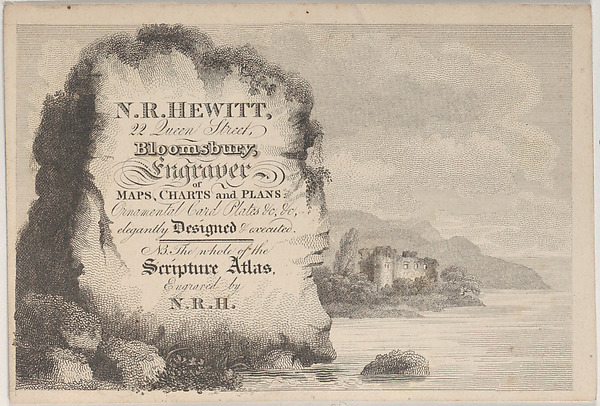 N.R. HEWITT,
22 Queen Street,
Bloomsbury,
Engraver
of
MAPS, CHARTS and PLANS
Ornamental Card Plates &c, &c,
elegantly Designed & executed.
NB. The whole of the
Scripture Atlas,
Engraved by
N.R.H.